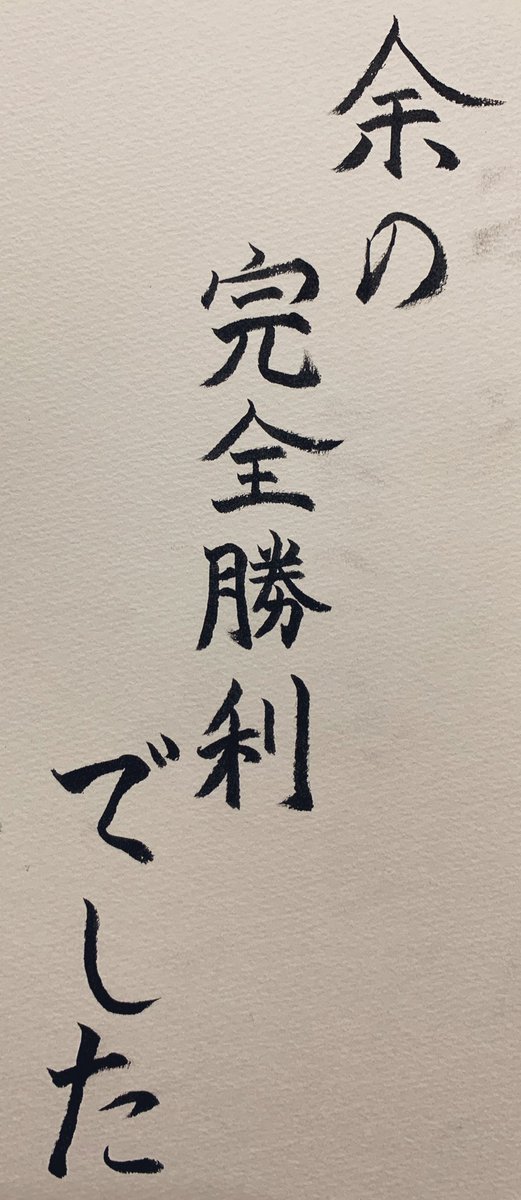 余の
完全勝利
でした